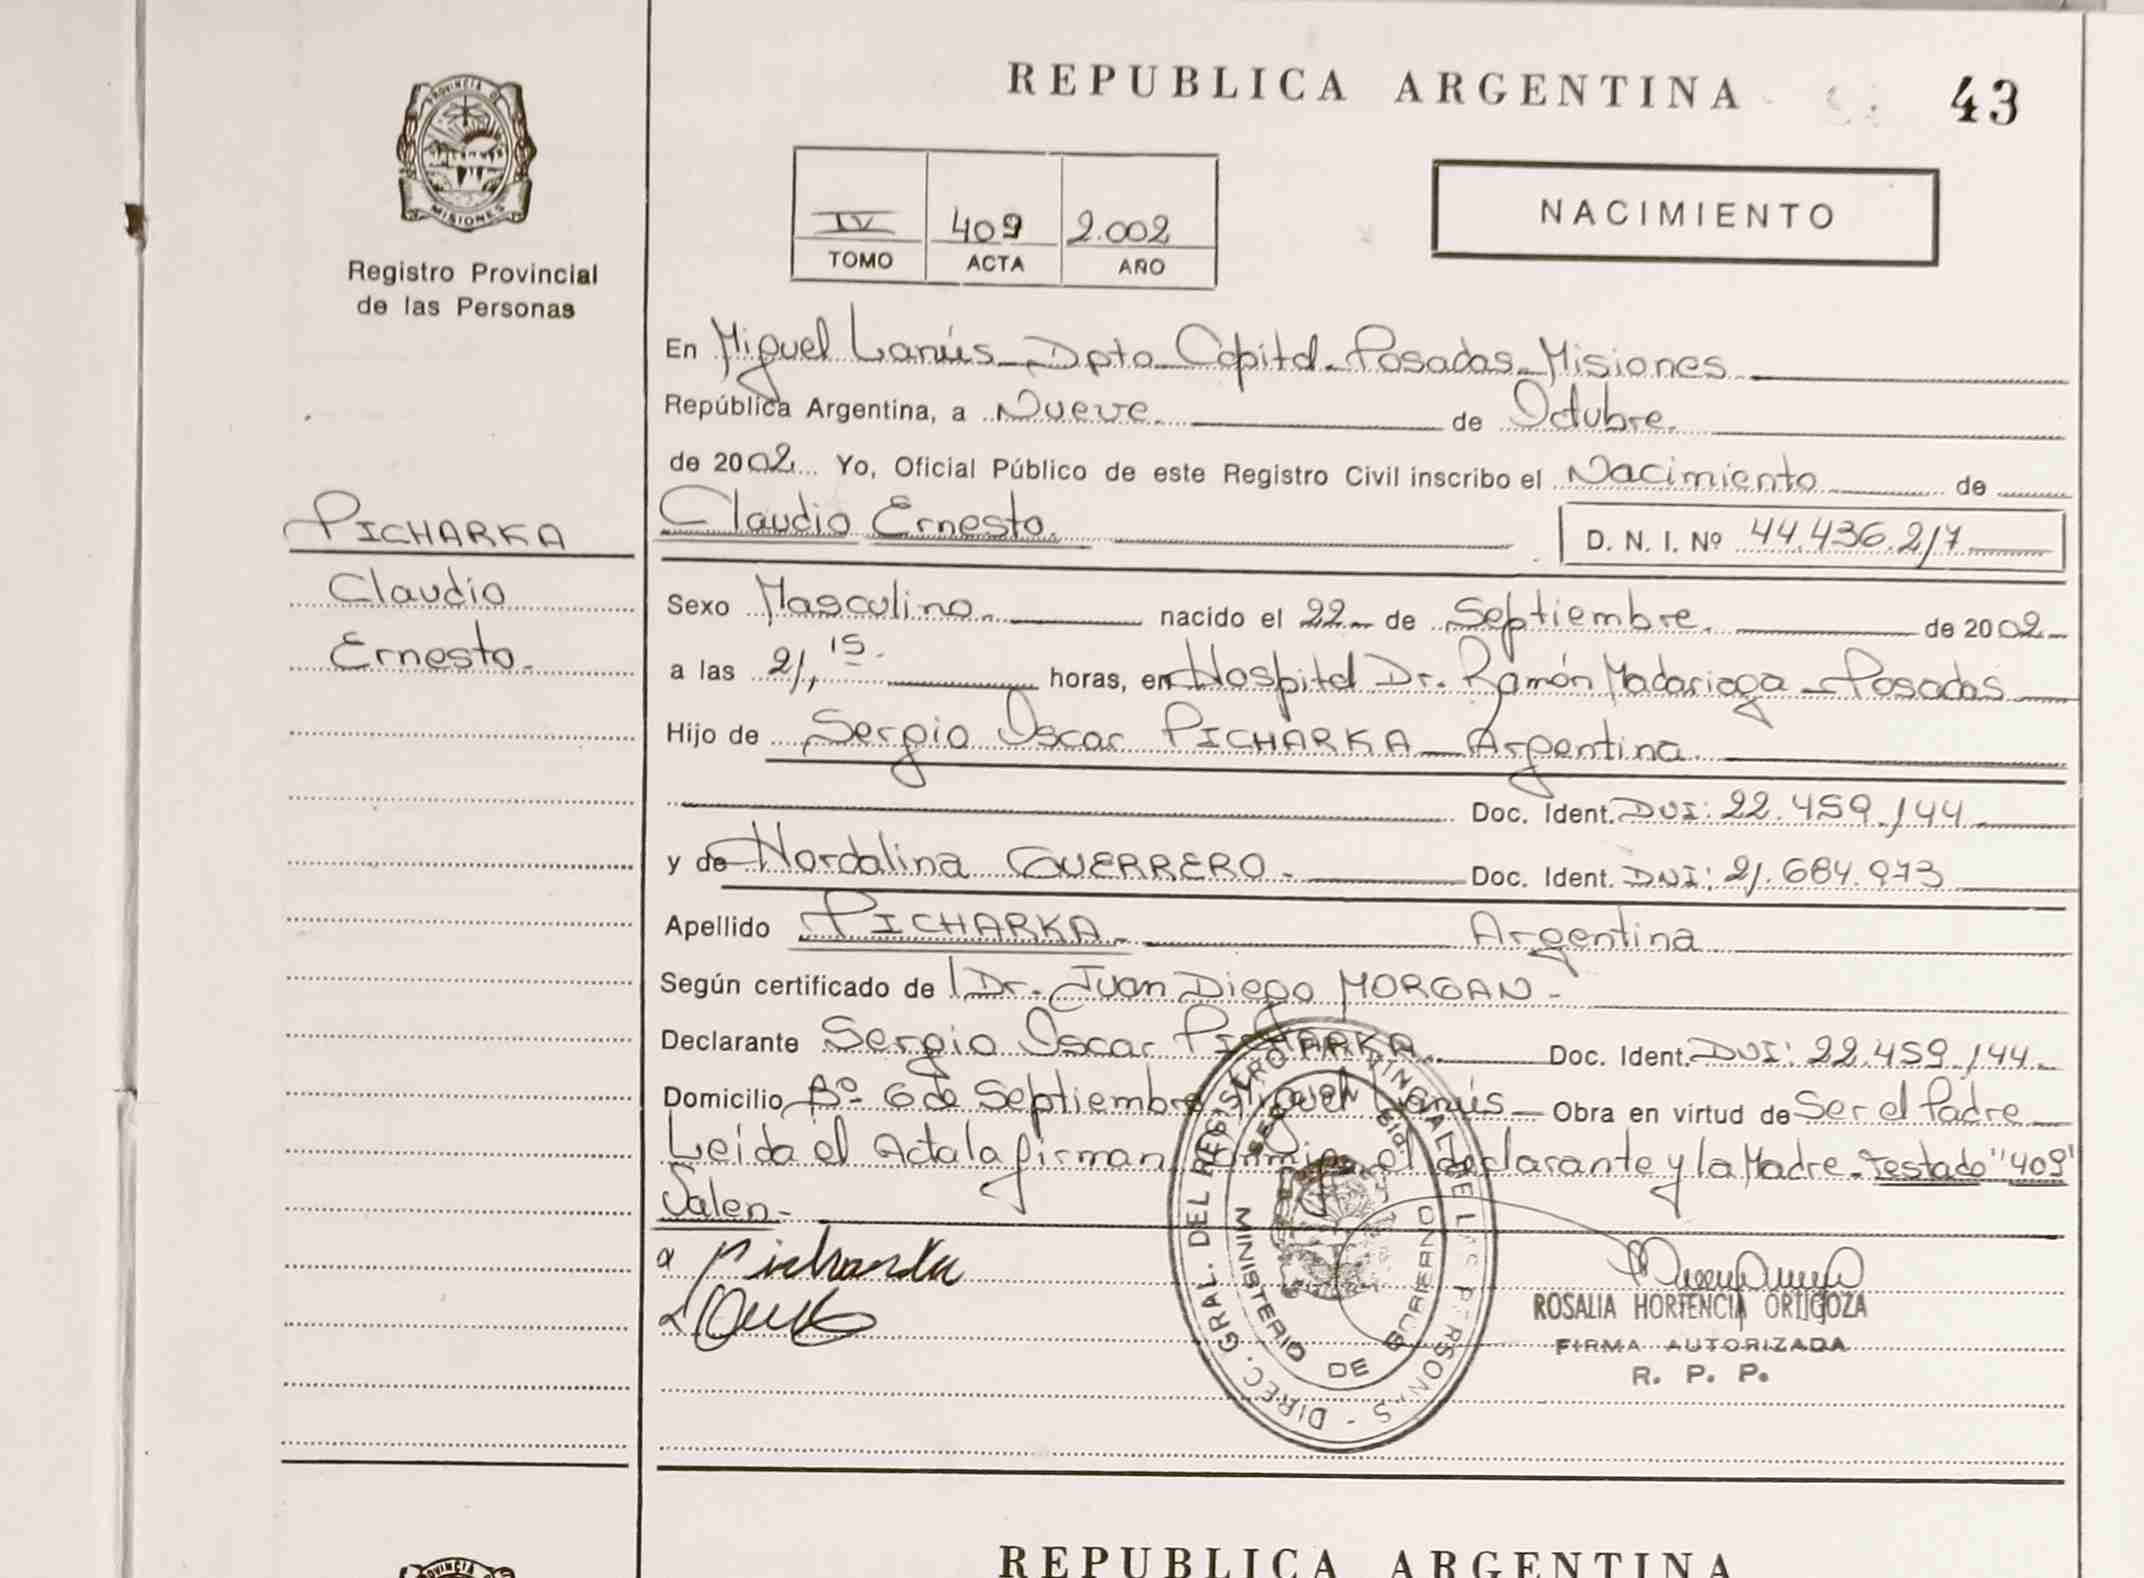 REPUBLICA ARGENTINA
43
PROVINCIA DE
MISIONES
Registro Provincial
de las Personas
IV 409 2.002
TOMO ACTA AÑO
NACIMIENTO
En Miguel Lanús - Dpto Capital - Posadas - Misiones
República Argentina, a Nueve de Octubre
de 2002 Yo, Oficial Público de este Registro Civil inscribo el Nacimiento de
PICHARKA
Claudio Ernesto. D. N. I. Nº 44.436.217
Claudio
Sexo Masculino. nacido el 22 de Septiembre. de 2002
Ernesto.
a las 21,15. horas, en Hospital Dr. Ramón Madariaga - Posadas
Hijo de Sergio Oscar PICHARKA - Argentina.
Doc. Ident. DNI: 22.459.144
y de Nordalina GUERRERO. - Doc. Ident. DNI: 21.684.973
Apellido PICHARKA - Argentina
Según certificado de Dr. Juan Diego MORGAN -
Declarante Sergio Oscar PICHARKA Doc. Ident. DNI: 22.459.144
Domicilio Bº 6 de Septiembre Miguel Lanús - Obra en virtud de Ser el Padre
Leída el Acta la firman conmigo el declarante y la Madre - Testado "409"
Salen -
Picharka
ROSALIA HORTENCIA ORTIGOZA
FIRMA AUTORIZADA
R. P. P.
DIREC. GRAL. DEL REGISTRO PROVINCIAL DE LAS PERSONAS
MINISTERIO DE GOBIERNO
REPUBLICA ARGENTINA